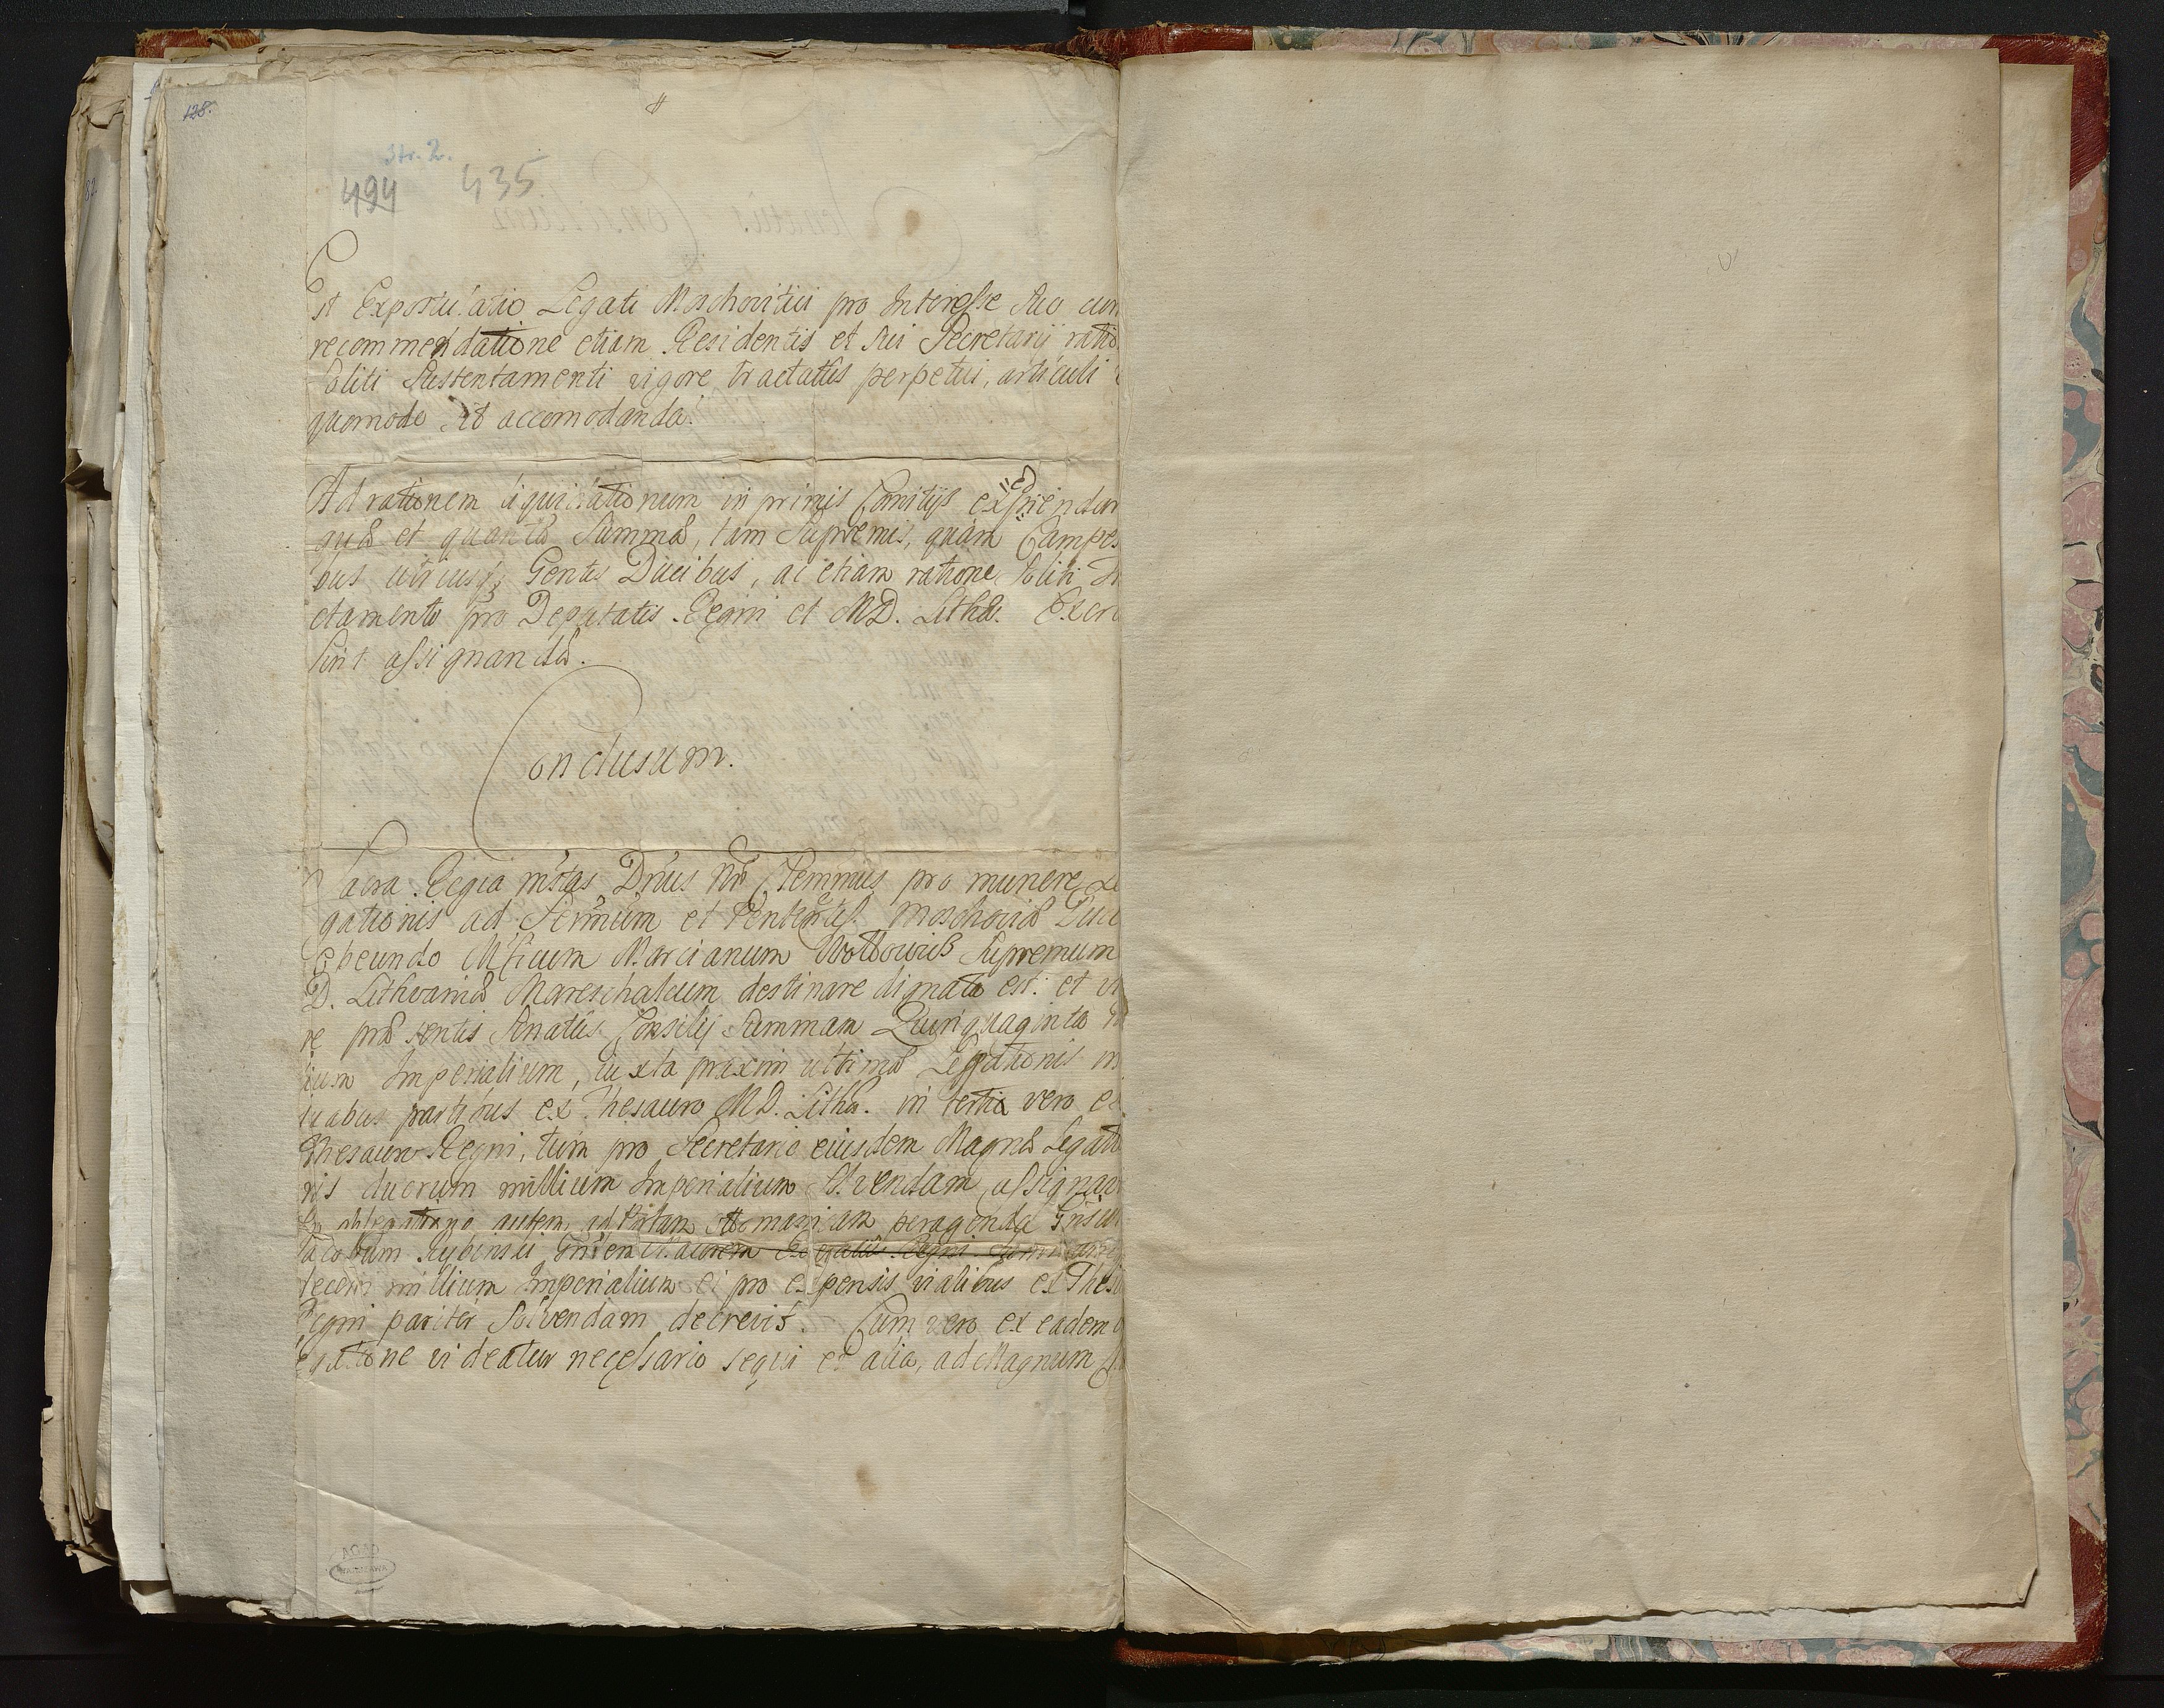 128.
Str. 2.
494 435
Et Expostulatio Legati Moschovitici pro Interesse suo cum
recommendatione etiam Residentis et sui Secretarij ratio
soliti sustentamenti vigore tractatûs perpetui, articuli
quomodo sit accomodanda?
Ad rationem liquidationum in primis Comitijs expediendar
quæ et quanta Summa, tam Supremis, quàm Campes
bus utriusq; Gentis Ducibus, ac etiam ratione soliti
ctamento pro Deputatis Regni et M.D. Lithæ. Exerc
sint assignandæ.
Conclusum.
Sacra Regia Mstas Dnus Nr Clemmus pro munere Le
gationis ad Sermum et Pentmos Moschoviæ Duc
obeundo Mficum Marcianum Wołłowicz Supremum
D. Lithvaniæ Mareschalcum destinare dignata est: et vi
re præsentis Senatûs Consilij Summam Quinquaginta
lium Imperialium, iuxta praxim ultimæ Legationis in
duabus partibus ex Thesauro M.D. Litha. in tertia vero ex
Thesauro Regni, tum pro Secretario eiusdem Magnæ Legatio
nis duorum millium Imperialium solvendam assignavit
In ablegatione autem ad Portam Ottomanicam peragenda Gnsum
Jacobum Rybinski Gnrem Regni
decem millium Imperialium ei pro expensis vialibus ex Thesau
Regni pariter Solvendam decrevit. Cum vero ex eadem
egatione videatur necessario sequi et alia, ad Magnum
AGAD
WARSZAWA